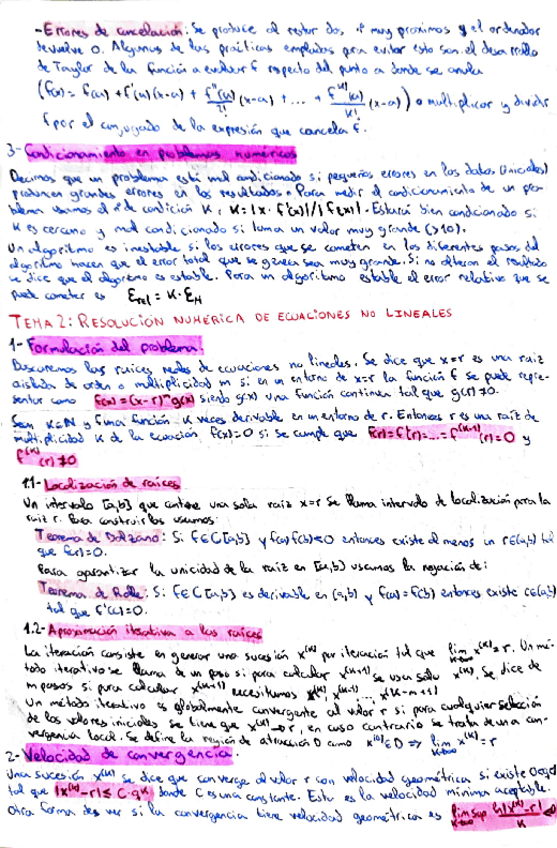 -Errores de cancelación: Se produce al restar dos nº muy proximos y el ordenador
devuelve 0. Algunas de las prácticas empleadas para evitar esto son el desarrollo
de Taylor de la función a evaluar f respecto del punto a donde se anula
(f(x) = f(a) + f'(a)(x-a) + f''(a)/2! (x-a) + ... + f^(k)(a)/k! (x-a)) o multiplicar y dividir
f por el conjugado de la expresión que cancela f.
3- Condicionamiento en problemas numéricos
Decimos que un problema está mal condicionado si pequeños errores en los datos (iniciales)
producen grandes errores en los resultados. Para medir el condicionamiento de un pro-
blema usamos el nº de condición K, K=|x·f'(x)|/|f(x)|. Estará bien condicionado si
K es cercano y mal condicionado si toma un valor muy grande (>10).
Un algoritmo es inestable si los errores que se cometen en los diferentes pasos del
algoritmo hacen que el error total que se genera sea muy grande. Si no alteran el resultado
se dice que el algoritmo es estable. Para un algoritmo estable el error relativo que se
puede cometer es Erel = K·EM
TEMA 2: RESOLUCIÓN NUMÉRICA DE ECUACIONES NO LINEALES
1- Formulación del problema.
Buscaremos las raíces reales de ecuaciones no lineales. Se dice que x=r es una raíz
aislada de orden o multiplicidad m si en un entorno de x=r la función f se puede repre-
sentar como f(x)=(x-r)^m g(x) siendo g(x) una función continua tal que g(r)≠0.
Sea K∈N y f una función K veces derivable en un entorno de r. Entonces r es una raíz de
multiplicidad K de la ecuación f(x)=0 si se cumple que f(r)=f'(r)=...=f^(K-1)(r)=0 y
f^(K)(r)≠0
1.1- Localización de raíces
Un intervalo [a,b] que contiene una sola raíz x=r se llama intervalo de localización para la
raíz r. Para construirlos usamos:
Teorema de Bolzano: Si f∈C[a,b] y f(a)f(b)<0 entonces existe al menos un r∈(a,b) tal
que f(r)=0.
Para garantizar la unicidad de la raíz en [a,b] usamos la negación de:
Teorema de Rolle: Si f∈C[a,b] es derivable en (a,b) y f(a)=f(b) entonces existe c∈(a,b)
tal que f'(c)=0.
1.2- Aproximación iterativa a las raíces
La iteración consiste en generar una sucesión x^(k) por iteración tal que lim k→∞ x^(k)=r. Un mé-
todo iterativo se llama de un paso si para calcular x^(k+1) se usa solo x^(k). Se dice de
m pasos si para calcular x^(k+1) necesitamos x^(k), x^(k-1), ... x^(k-m+1)
Un método iterativo es globalmente convergente al valor r si para cualquier selección
de los valores iniciales se tiene que x^(k)→r, en caso contrario se trata de una con-
vergencia local. Se define la región de atracción D como x^(0)∈D ⇒ lim k→∞ x^(k)=r
2- Velocidad de convergencia.
Una sucesión x^(k) se dice que converge al valor r con velocidad geométrica si existe 0<q<1
tal que |x^(k)-r| ≤ C·q^k donde C es una constante. Esta es la velocidad mínima aceptable.
Otra forma de ver si la convergencia tiene velocidad geométrica es lim sup k→∞ ln|x^(k)-r|/k <0